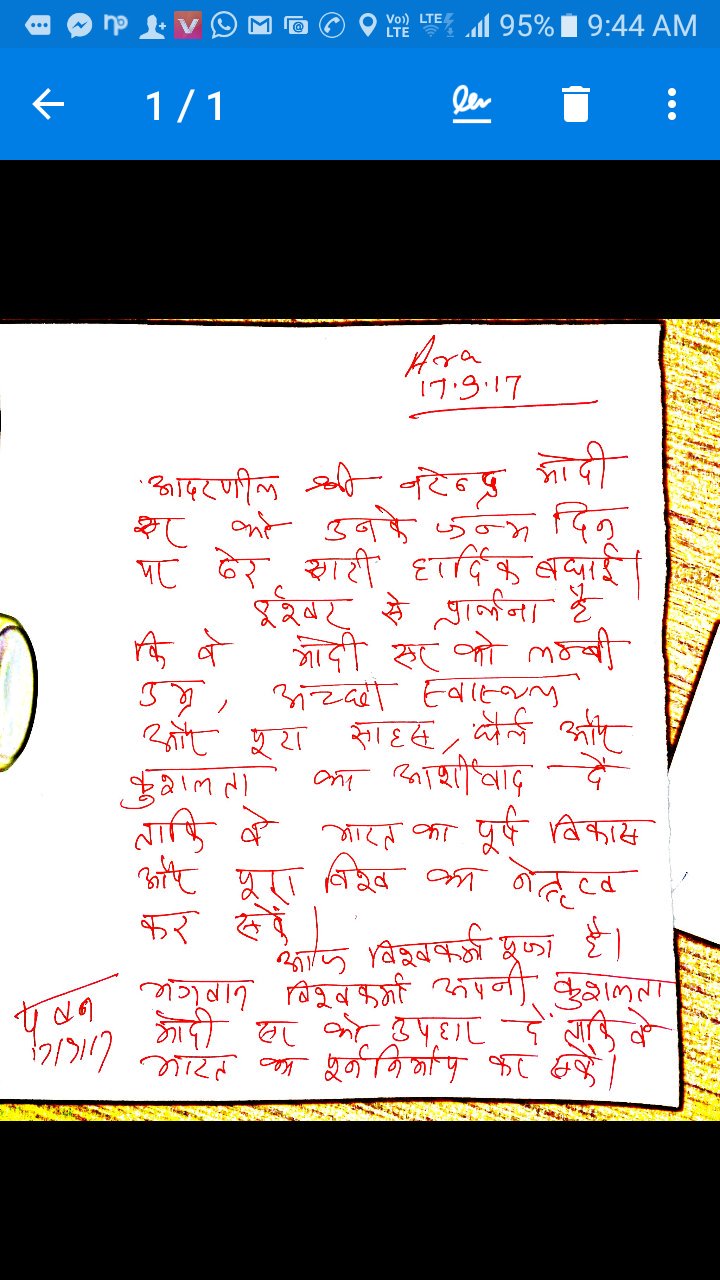 95% 9:44 AM
1 / 1
Ara
17.9.17
आदरणीय श्री नरेन्द्र मोदी
सर को उनके जन्म दिन
पर ढेर सारी हार्दिक बधाई।
ईश्वर से प्रार्थना है
कि वे मोदी सर को लम्बी
उम्र, अच्छा स्वास्थ्य
और पूरा साहस, धैर्य और
कुशलता का आशीर्वाद दें
ताकि वे भारत का पूर्ण विकास
और पूरा विश्व का नेतृत्व
कर सकें।
आज विश्वकर्मा पूजा है।
भगवान विश्वकर्मा अपनी कुशलता
मोदी सर को उपहार दें ताकि वे
भारत का पूर्ननिर्माण कर सकें।
पवन
17/9/17